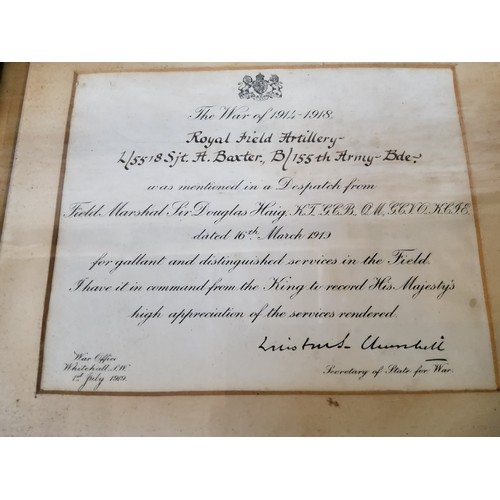 The War of 1914-1918.
Royal Field Artillery-
L/5518 Sjt. A. Baxter, B/155th Army-Bde-
was mentioned in a Despatch from
Field Marshal Sir Douglas Haig, K.T. G.C.B. O.M. G.C.V.O. K.C.I.E.
dated 16th March 1919
for gallant and distinguished services in the Field.
I have it in command from the King to record His Majesty's
high appreciation of the services rendered.
Winston S. Churchill
War Office
Whitehall, S.W.
1st July 1919.
Secretary of State for War.